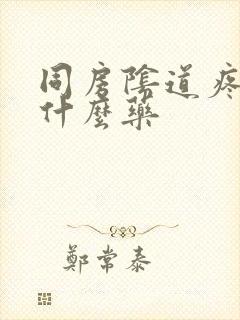 同房陰道疼
什麼藥
鄭常泰